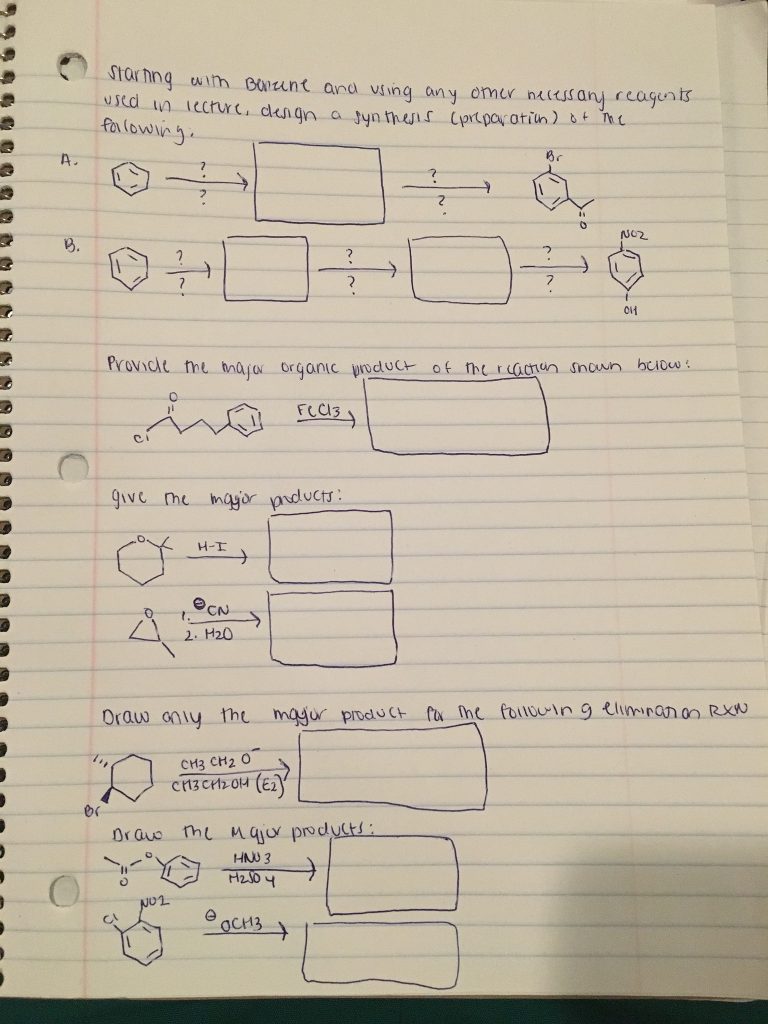 starting with Benzene and using any other necessary reagents
used in lecture, design a synthesis (preparation) of the
following.
A.
?
?
?
?
Br
O
B.
?
?
?
?
?
?
NO2
OH
Provide the major organic product of the reaction shown below:
O
Cl
FeCl3
give the major products:
O
H-I
O
1. ⊖CN
2. H2O
Draw only the major product for the following elimination RXN
CH3CH2O⁻
CH3CH2OH (E2)
Br
Draw the Major products:
O
O
HNO3
H2SO4
NO2
Cl
⊖OCH3